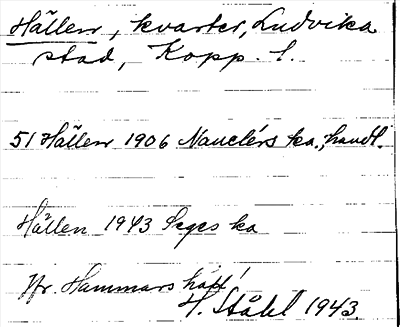 Hällen, kvarter, Ludvika
stad, Kopp. l.
51 Hällen 1906 Nauclérs ka., handl.
Hällen 1943 Seges ka
Jfr. Hammars
H. Ståhl 1943